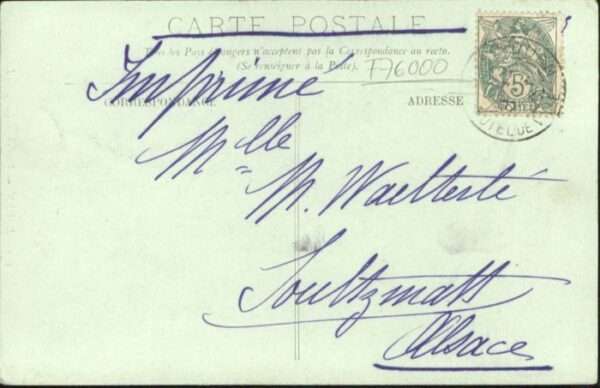 CARTE POSTALE
Tous les Pays étrangers n'acceptent pas la Correspondance au recto.
(Se renseigner à la Poste).
F76000
Imprimé
CORRESPONDANCE
ADRESSE
5
HOTEL DE V
Mlle
M. Waelterlé
Soultzmatt
Alsace